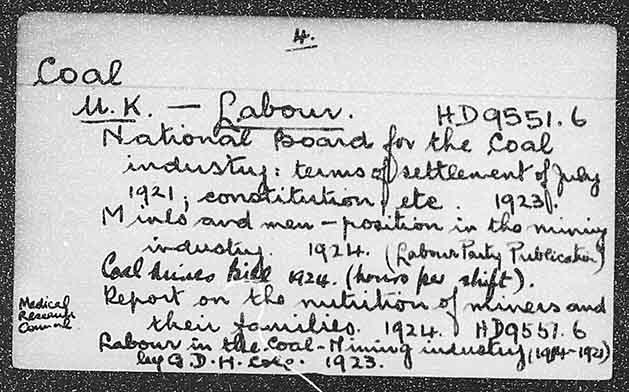 4.
Coal
U.K. — Labour. HD9551.6
National Board for the Coal
industry: terms of settlement of July
1921; constitution etc. 1923.
Mines and men – position in the mining
industry. 1924. (Labour Party Publication)
Coal Mines Bill 1924. (hours per shift).
Report on the nutrition of miners and
Medical
Research
Council
their families. 1924. HD9551.6
Labour in the Coal-Mining industry (1914-1921)
by G.D.H. Cole. 1923.